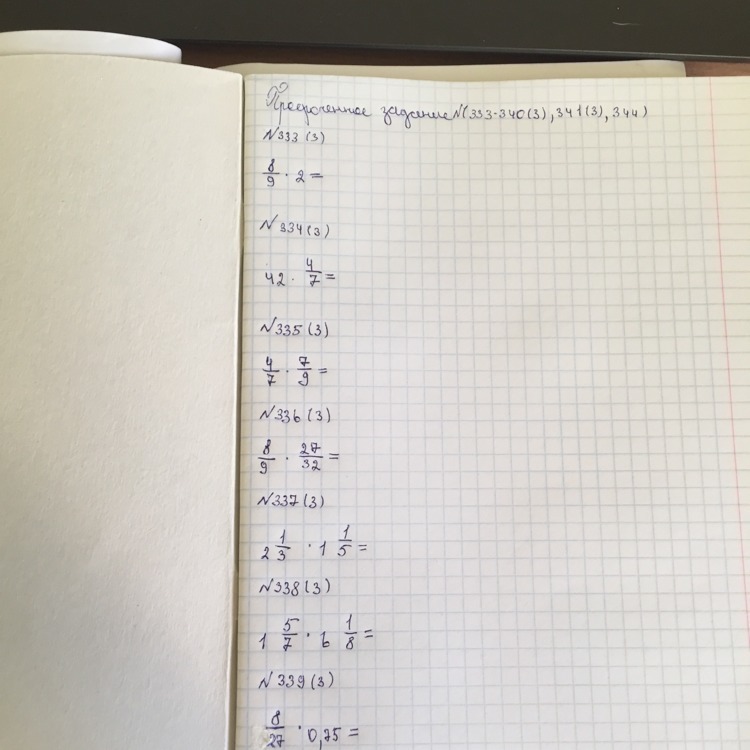 Просроченное задание №(333-340(3), 341(3), 344)
№333(3)
8/9 · 2 =
№334(3)
42 · 4/7 =
№335(3)
4/7 · 7/9 =
№336(3)
8/9 · 27/32 =
№337(3)
2 1/3 · 1 1/5 =
№338(3)
1 5/7 · 6 1/8 =
№339(3)
8/27 · 0,75 =